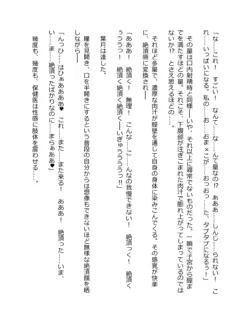 「な！　これ！　すごい！　なんて……な、なんて量なの!?　あああ！　しんじ……しられない！　こ
れ！　いっぱいになる。私の！　お……おま×こが！　おっおっ……た、タプタプになるぅー！」
その量は口内射精時とは比べものにならないくらい尋常でないものだった。一瞬で子宮から膣ま
でを満たすほどの量。それこそ、下腹部が注ぎこまれた肉汁で膨れ上がってしまっているのでは
ないか!?　とさえ思えるほどだ。
それほど多量で、濃厚な肉汁が膣壁を通して自身の身体に染みこんでくる。その感覚が快楽
に、絶頂感に変換され――
「あああ！　絶頂く！　無理！　こんな！　こ……んなの我慢できない！　絶頂く！　絶頂く、絶
頂く――絶頂く絶頂く絶頂く――いぎゅうううっう――っ!!」
葉月は達した。
瞳を見開き、口を半開きにするという普段の自分からは想像もできないほど無様な絶頂顔を晒
しながら――
「んっひ！　はひぁああああ♥　これ！　また……また来る！　あああ！　絶頂った……いま、
絶頂ったばっかりなのに……まらぁああ♥」
幾度も、幾度も、保健医は性感に肢体を震わせる……。